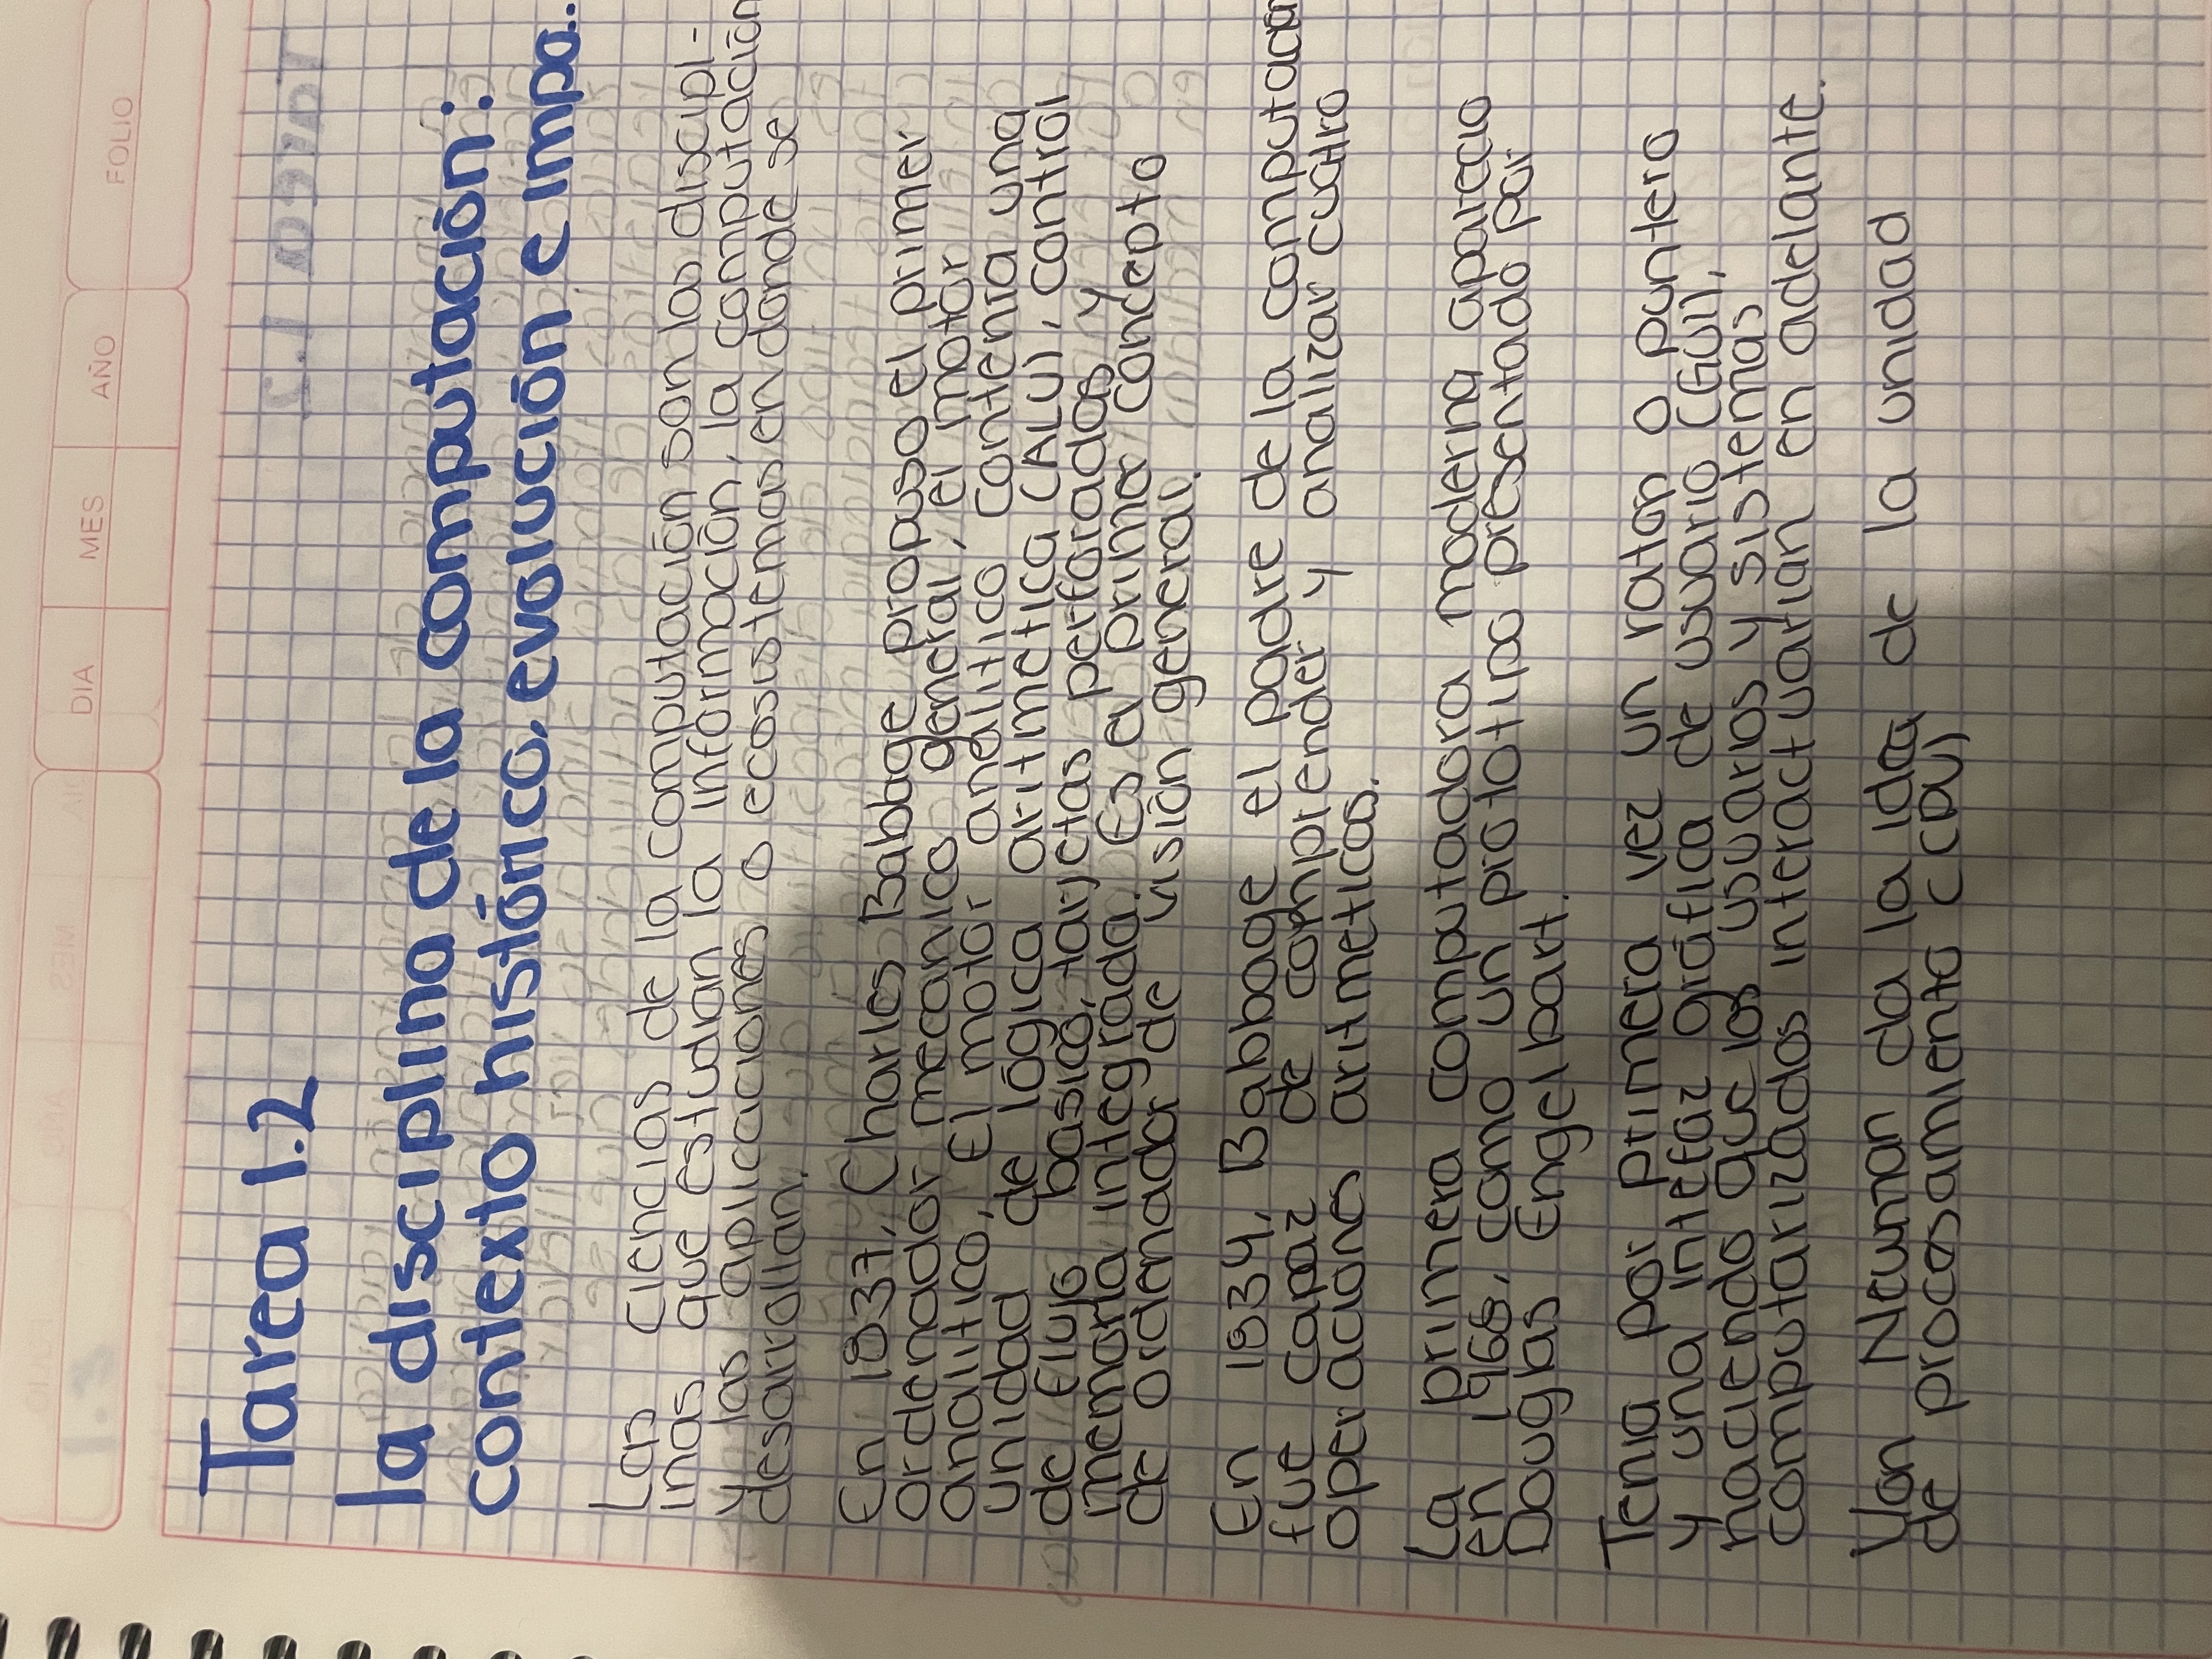 DIA MES AÑO FOLIO
Tarea 1.2
la disciplina de la computación:
contexto histórico, evolución e impa..
Las ciencias de la computación son las discipl-
inas que estudian la información, la computación
y las aplicaciones o ecosistemas en donde se
desarrollan.
En 1837, Charles Babbage propuso el primer
ordenador mecanico general, el motor
analitico, El motor analitico contenia una
unidad de lógica aritmetica (ALU), control
de flujo basico, tarjetas perforadas y
memoria integrada. Es el primer concepto
de ordenador de visión general.
En 1834, Babbage el padre de la computación
fue capaz de comprender y analizar cuatro
operaciones aritmeticas.
La primera computadora moderna aparecio
en 1968, como un prototipo presentado por
Douglas Engelbart.
Tenia por primera vez un raton o puntero
y una intefaz gráfica de usuario (GUI),
haciendo que los usuarios y sistemas
computarizados interactuarian en adelante.
Von Neuman da la idea de la unidad
de procesamiento (CPU)